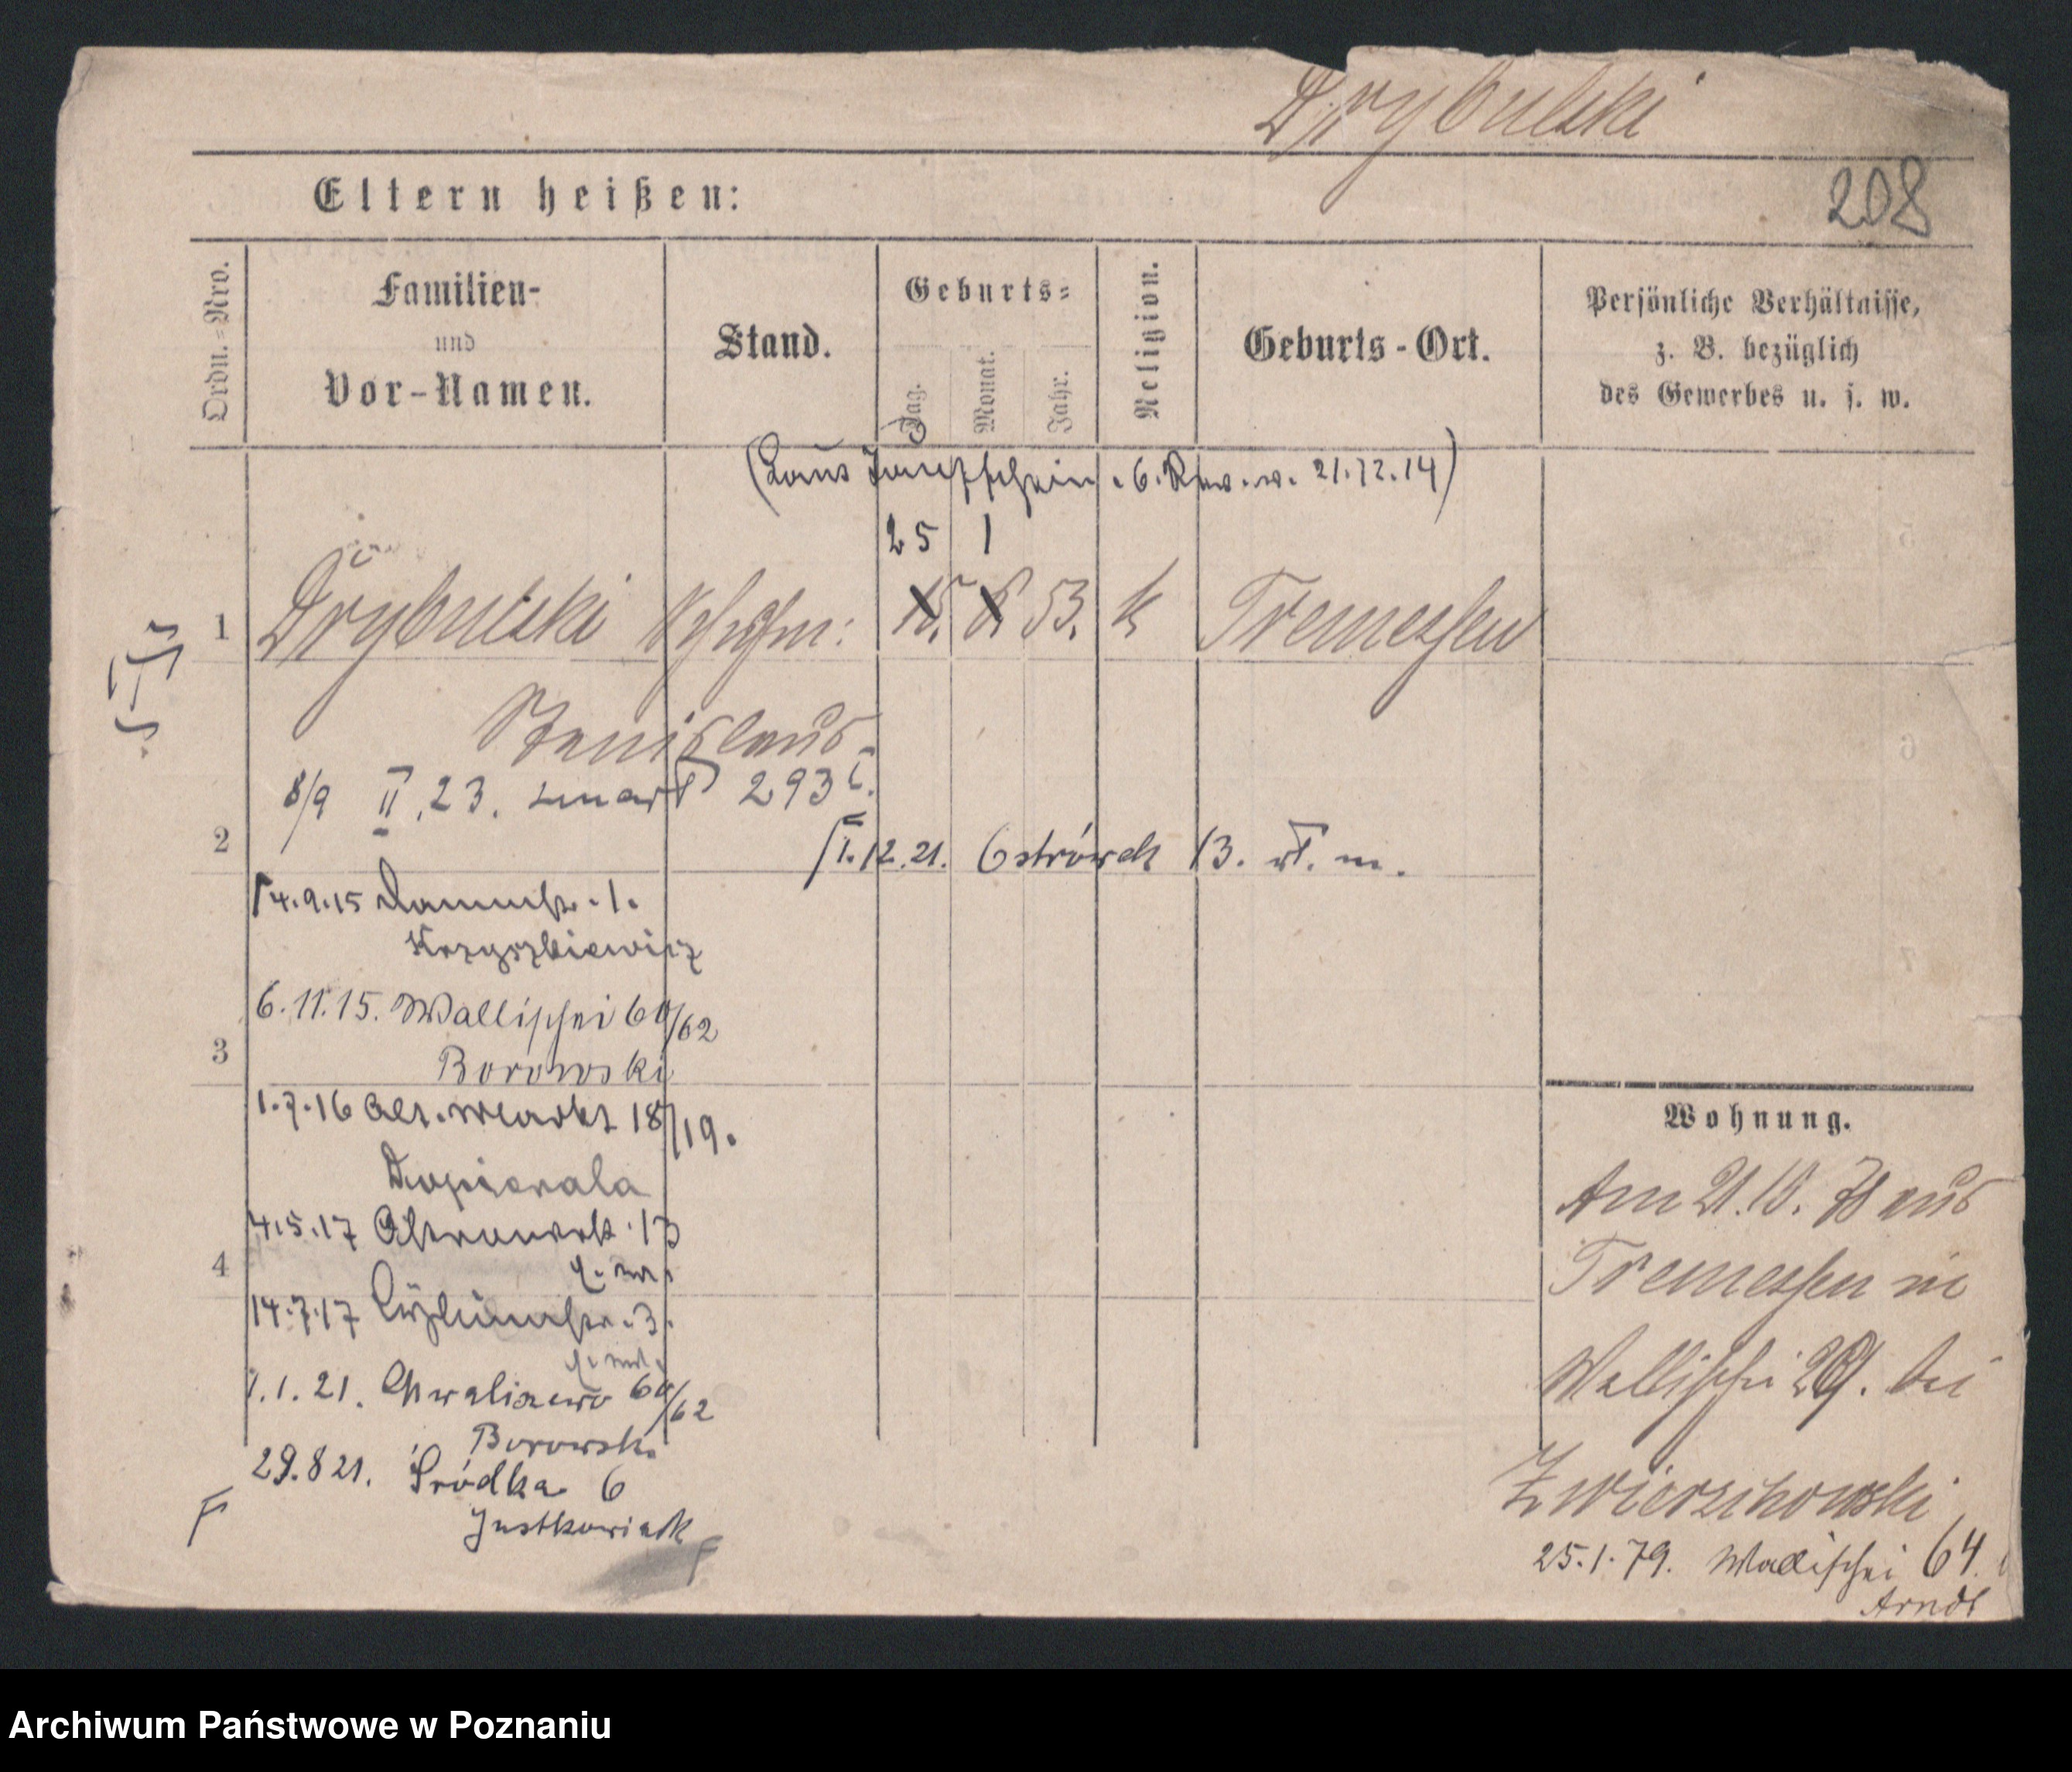 Drybulski
208
Eltern heißen:
Ordn.=Nro.
Familien-
und
Vor-Namen.
Stand.
Geburts=
Tag.
Monat.
Jahr.
Religion.
Geburts-Ort.
Persönliche Verhältnisse,
z. B. bezüglich
des Gewerbes u. s. w.
(Laut Taufschein 21.12.14)
25 1
1 Drybulski 15. 8. 53. k Tremessen
Stanislaus
8/9 II.23. zmarł 293
2
1.12.21. Ostrówek 13.
4.9.15 Dammstr. 1.
Krzyszkiewicz
6.11.15. Wallischei 60/62
3
Borowski
1.7.16 Alt. Markt 18/19.
Dopierala
4.5.17 13
4
14.7.17 3.
1.1.21. Chwaliszewo 60/62
Borowski
29.8 21. Śródka 6
Justkowiak
Wohnung.
Am 21.10. 78 aus
Tremessen in
Wallischei 29. bei
Zwierzchowski
25.1.79. Wallischei 64.
Arndt
Archiwum Państwowe w Poznaniu